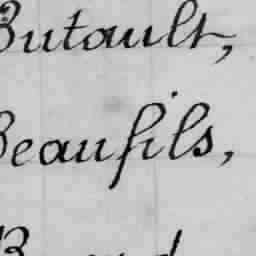 Butault,
Beaufils,